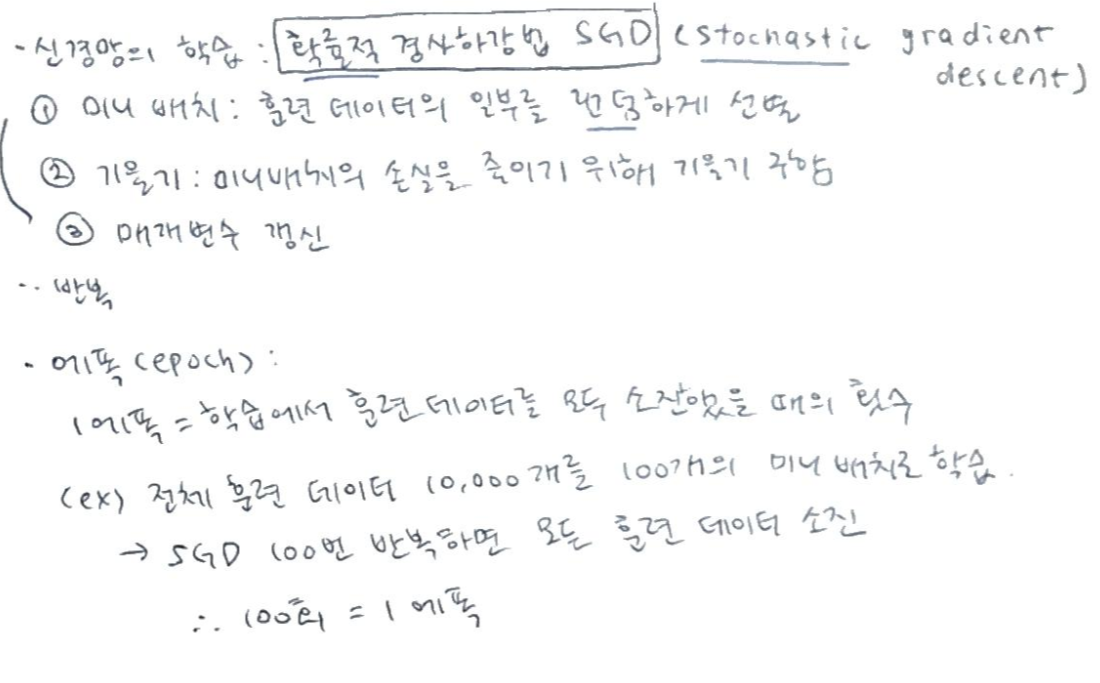 · 신경망의 학습 : 확률적 경사하강법 SGD (stochastic gradient
descent)
① 미니 배치 : 훈련 데이터의 일부를 랜덤하게 선별
② 기울기 : 미니배치의 손실을 줄이기 위해 기울기 구함
③ 매개변수 갱신
·· 반복
· 에폭 (epoch) :
1에폭 = 학습에서 훈련 데이터를 모두 소진했을 때의 횟수
(ex) 전체 훈련 데이터 10,000개를 100개의 미니 배치로 학습.
→ SGD 100번 반복하면 모든 훈련 데이터 소진
∴ 100회 = 1 에폭